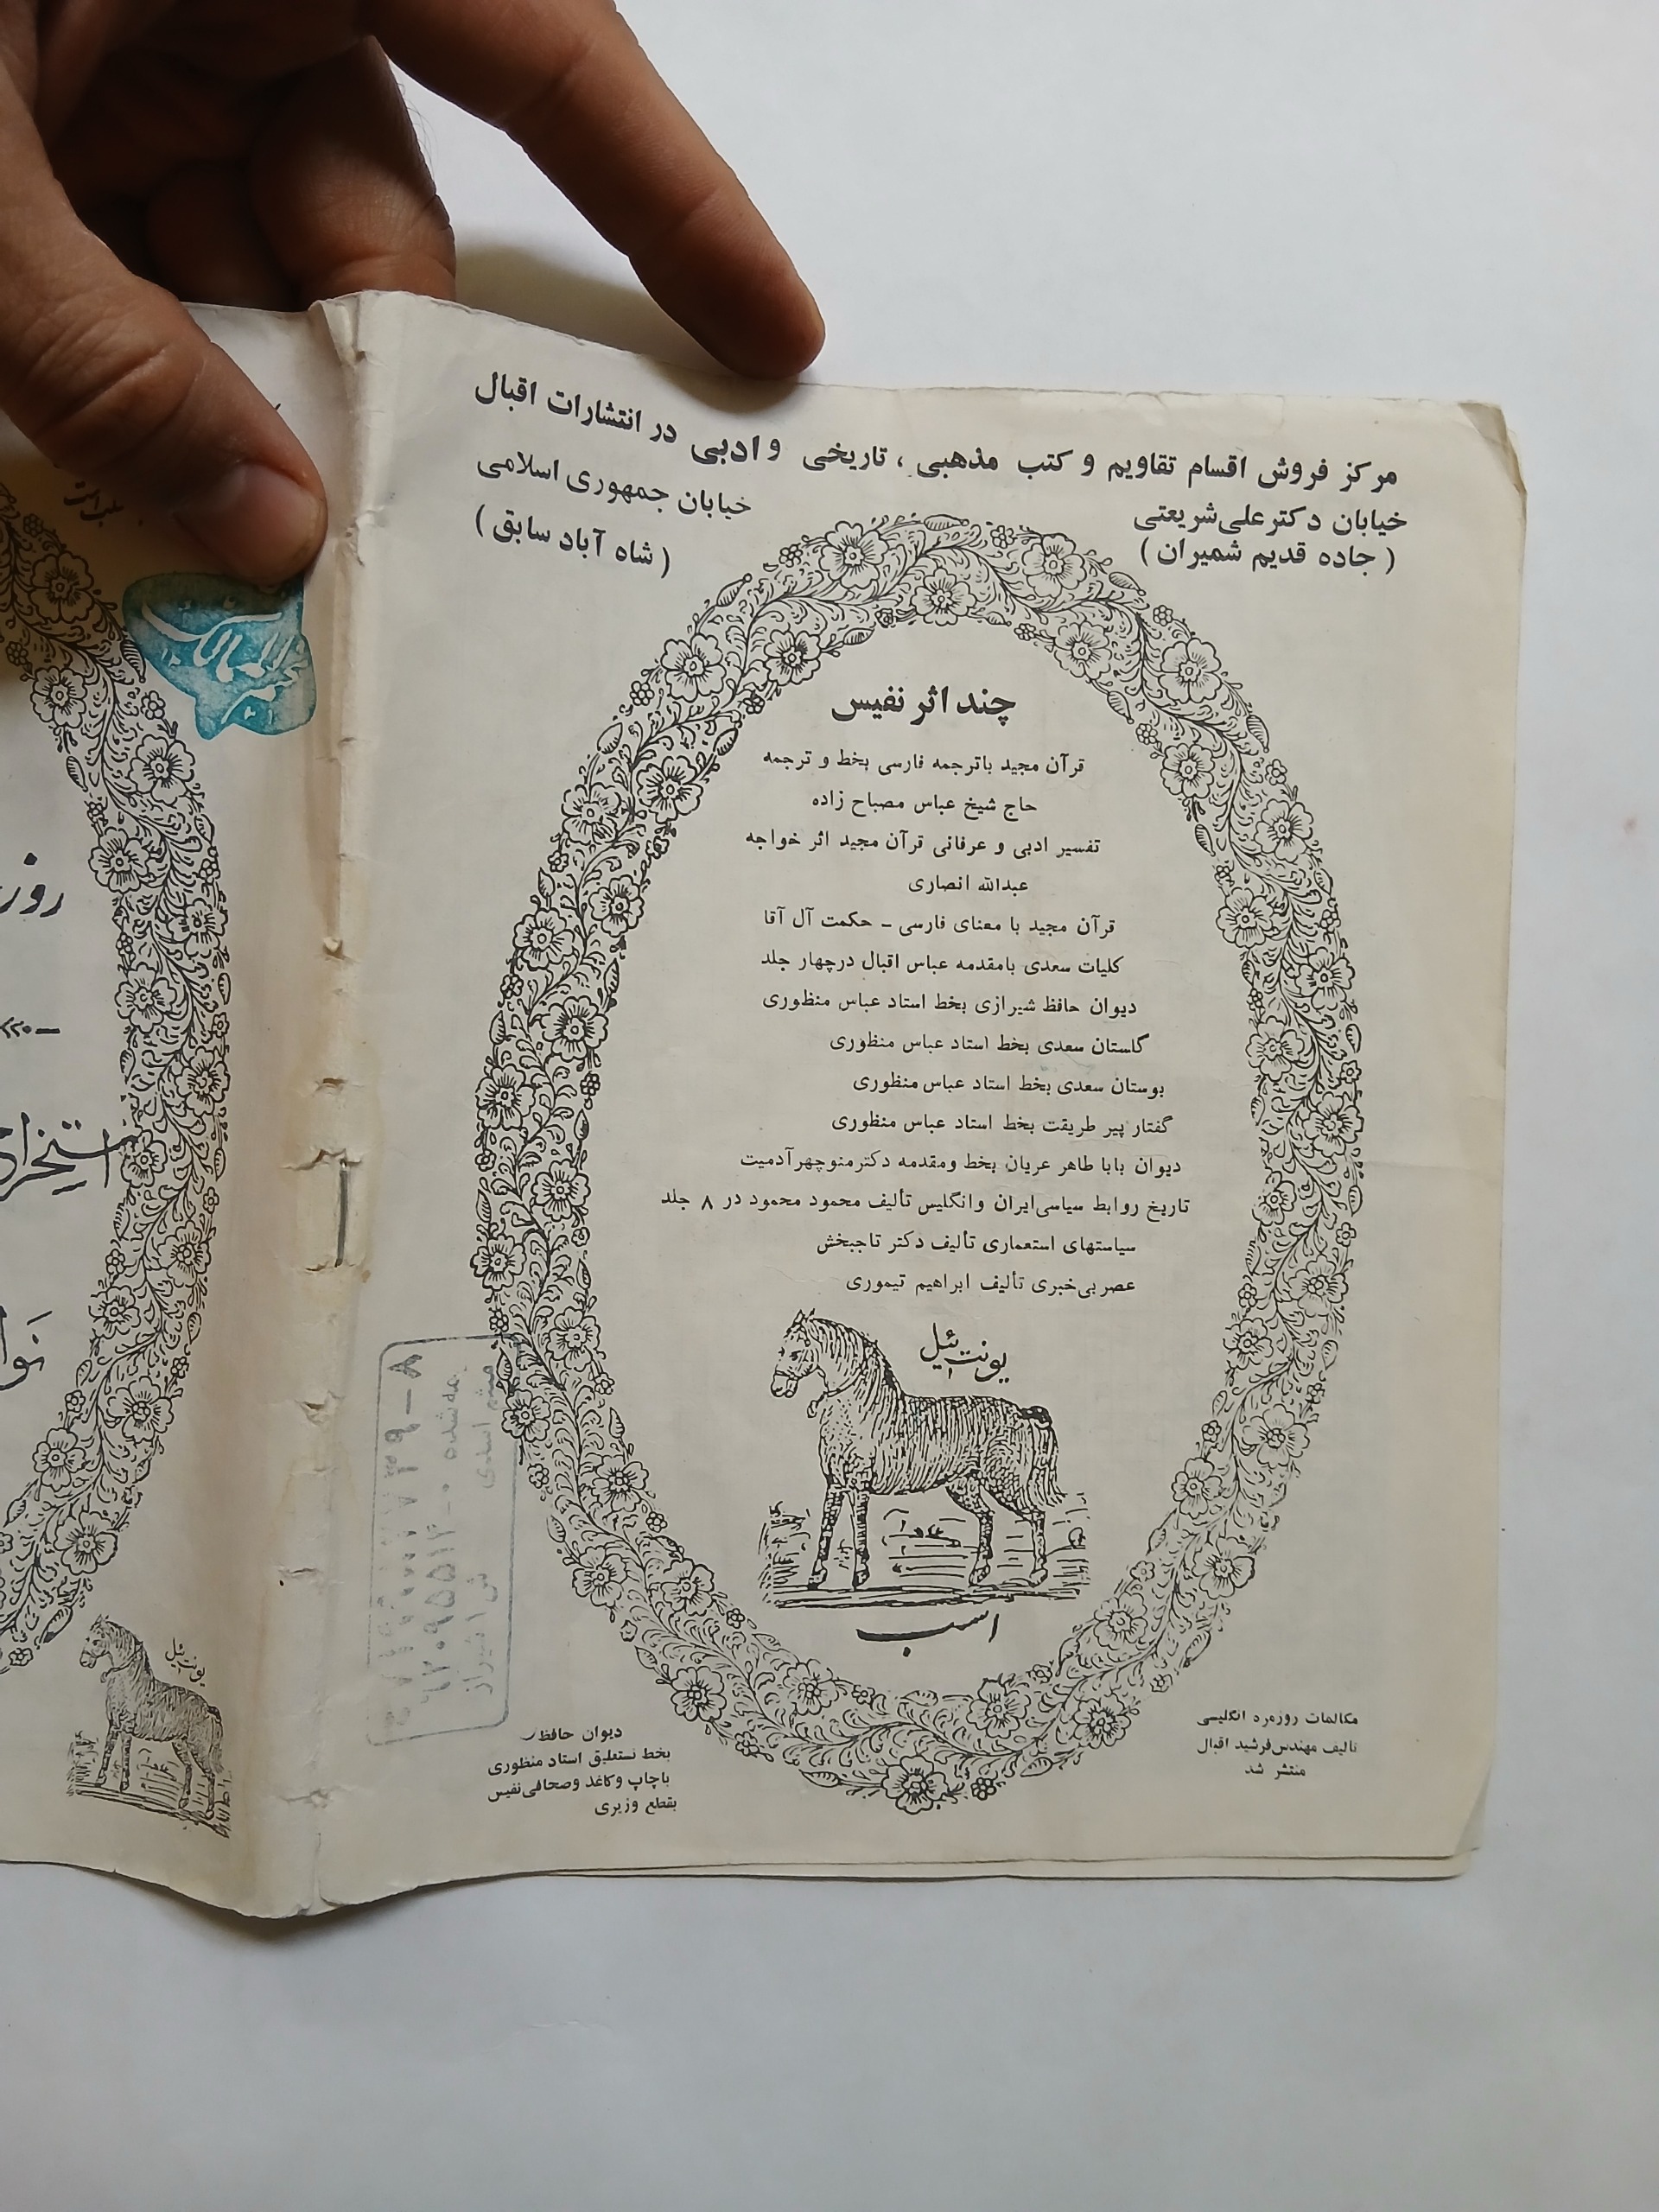 مرکز فروش اقسام تقاویم و کتب مذهبی ، تاریخی و ادبی در انتشارات اقبال
خیابان دکتر علی شریعتی
( جاده قدیم شمیران )
خیابان جمهوری اسلامی
( شاه آباد سابق )
چند اثر نفیس
قرآن مجید باترجمه فارسی بخط و ترجمه
حاج شیخ عباس مصباح زاده
تفسیر ادبی و عرفانی قرآن مجید اثر خواجه
عبدالله انصاری
قرآن مجید با معنای فارسی ـ حکمت آل آقا
کلیات سعدی بامقدمه عباس اقبال درچهار جلد
دیوان حافظ شیرازی بخط استاد عباس منظوری
گلستان سعدی بخط استاد عباس منظوری
بوستان سعدی بخط استاد عباس منظوری
گفتار پیر طریقت بخط استاد عباس منظوری
دیوان بابا طاهر عریان بخط ومقدمه دکترمنوچهرآدمیت
تاریخ روابط سیاسی‌ایران وانگلیس تألیف محمود محمود در ۸ جلد
سیاستهای استعماری تألیف دکتر تاجبخش
عصر بی‌خبری تألیف ابراهیم تیموری
یونت ئیل
اسب
مکالمات روزمره انگلیسی
تالیف مهندس فرشید اقبال
منتشر شد
دیوان حافظ
بخط نستعلیق استاد منظوری
باچاپ وکاغذ وصحافی نفیس
بقطع وزیری
یونت ئیل